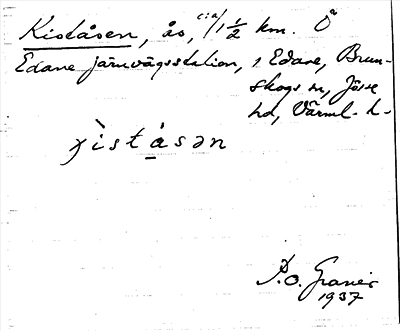 Kiståsen, ås, c:a 1 1/2 km. Ö om
Edane järnvägsstation, i Edane, Brun-
skogs sn, Jösse
hd, Värml. l.
χìstás̱ən
P.O. Graner
1937